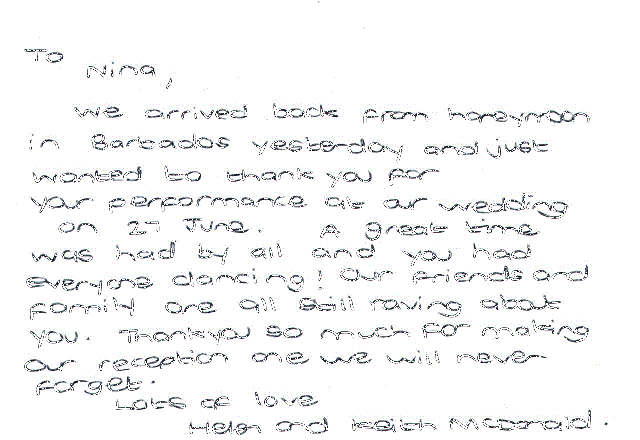 To
Nina,
We arrived back from honeymoon
in Barbados yesterday and just
wanted to thank you for
your performance at our wedding
on 27 June. A great time
was had by all and you had
everyone dancing! Our friends and
family are all still raving about
you. Thankyou so much for making
our reception one we will never
forget.
Lots of love
Helen and Keith McDonald.